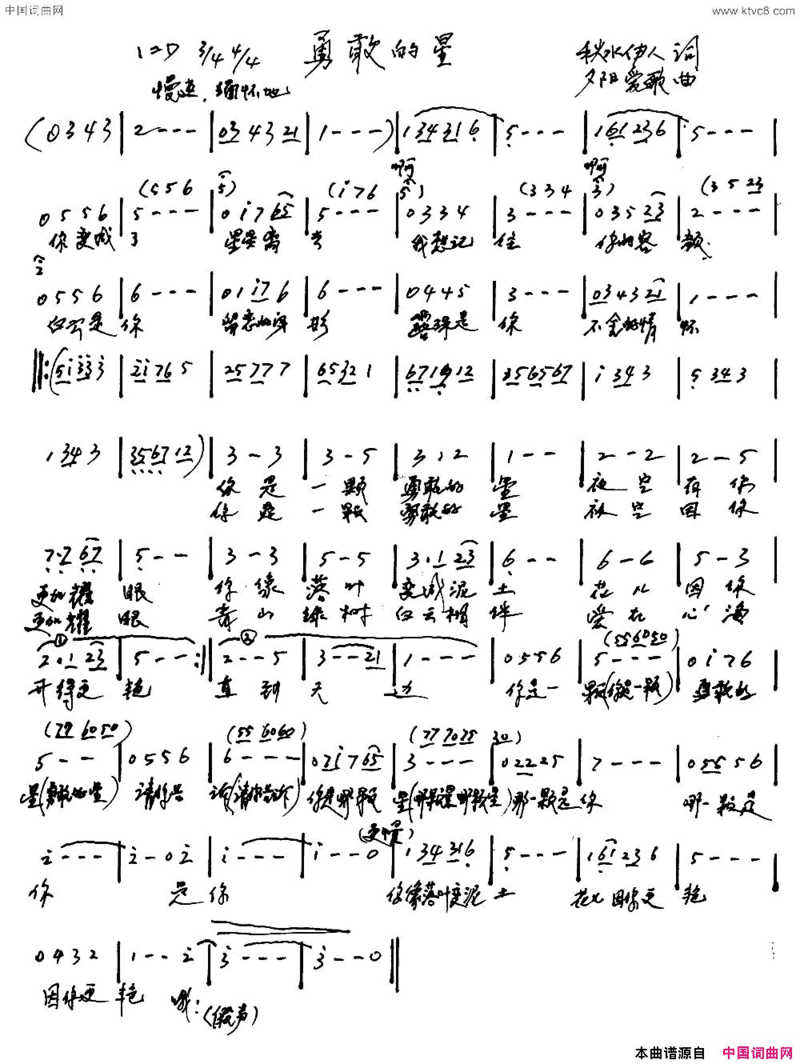 中国词曲网
www.ktvc8.com
1=D 3/4 4/4 勇敢的星 秋水伊人 词
夕阳爱歌 曲
慢速，缅怀地
(0 3 4 3 | 2 - - - | 0 3 4 3 2 1 | 1 - - -) | 1 3 4 3 1 6 | 5 - - - | 1 6 1 2 3 6 | 5 - - - |
啊 啊
(5 5 6 5) (i 7 6 5) (3 3 4 3) (3 5 2 3
0 5 5 6 | 5 - - - | 0 i 7 6 5 | 5 - - - | 0 3 3 4 | 3 - - - | 0 3 5 2 3 | 2 - - - |
你变成 了 星星离 去 我想记 住 你的容 颜
2)
0 5 5 6 | 6 - - - | 0 1 i 7 6 | 6 - - - | 0 4 4 5 | 3 - - - | 0 3 4 3 2 1 | 1 - - - |
白云是 你 留恋的身 影 露珠是 你 不舍的情 怀
‖:(5 i 3 3 3 | 2 i 7 6 5 | 2 5 7 7 7 | 6 5 3 2 1 | 6 7 1 6 1 2 | 3 5 6 5 6 7 | i 3 4 3 | 5 3 4 3 |
1 3 4 3 | 3 5 6 7 1 2) | 3 - 3 | 3 - 5 | 3 · 1 2 | 1 - - | 2 - 2 | 2 - 5 |
你 是 一 颗 勇敢的 星 夜 空 有 你
你 是 一 颗 勇敢的 星 夜 空 因 你
7 · 2 6 7 | 5 - - | 3 - 3 | 5 - 5 | 3 · 1 2 3 | 6 - - | 6 - 6 | 5 - 3 |
更加耀 眼 你 像 落 叶 变成泥 土 花 儿 因 你
更加耀 眼 青 山 绿 树 白云相 伴 爱 在 心 海
① ② (5 5 6 0 5 0)
2 · 1 2 3 | 5 - - :‖ 2 - - 5 | 3 - - 2 1 | 1 - - - | 0 5 5 6 | 5 - - - | 0 i 7 6 |
开得更 艳 直 到 天 边 你是一 颗(你是一颗) 勇敢的
(7 7 6 0 5 0) (5 5 6 0 6 0) (7 7 7 0 7 5 3 0)
5 - - - | 0 5 5 6 | 6 - - - | 0 2 i 7 6 5 | 3 - - - | 0 2 2 2 5 | 7 - - - | 0 5 5 5 6 |
星(勇敢的星) 请你告 诉(请你告诉) 你是哪颗 星(哪颗星哪颗星) 那一颗是 你 哪一颗是
(更慢)
2 - - - | 2 - 0 2 | i - - - | i - - 0 | 1 3 4 3 1 6 | 5 - - - | 1 6 1 2 3 6 | 5 - - - |
你 是 你 你像落叶变泥 土 花儿因你更 艳
0 4 3 2 | 1 - - 2 | 3 - - - | 3 - - 0 ‖
因你更 艳 哦：(假声)
本曲谱源自 中国词曲网